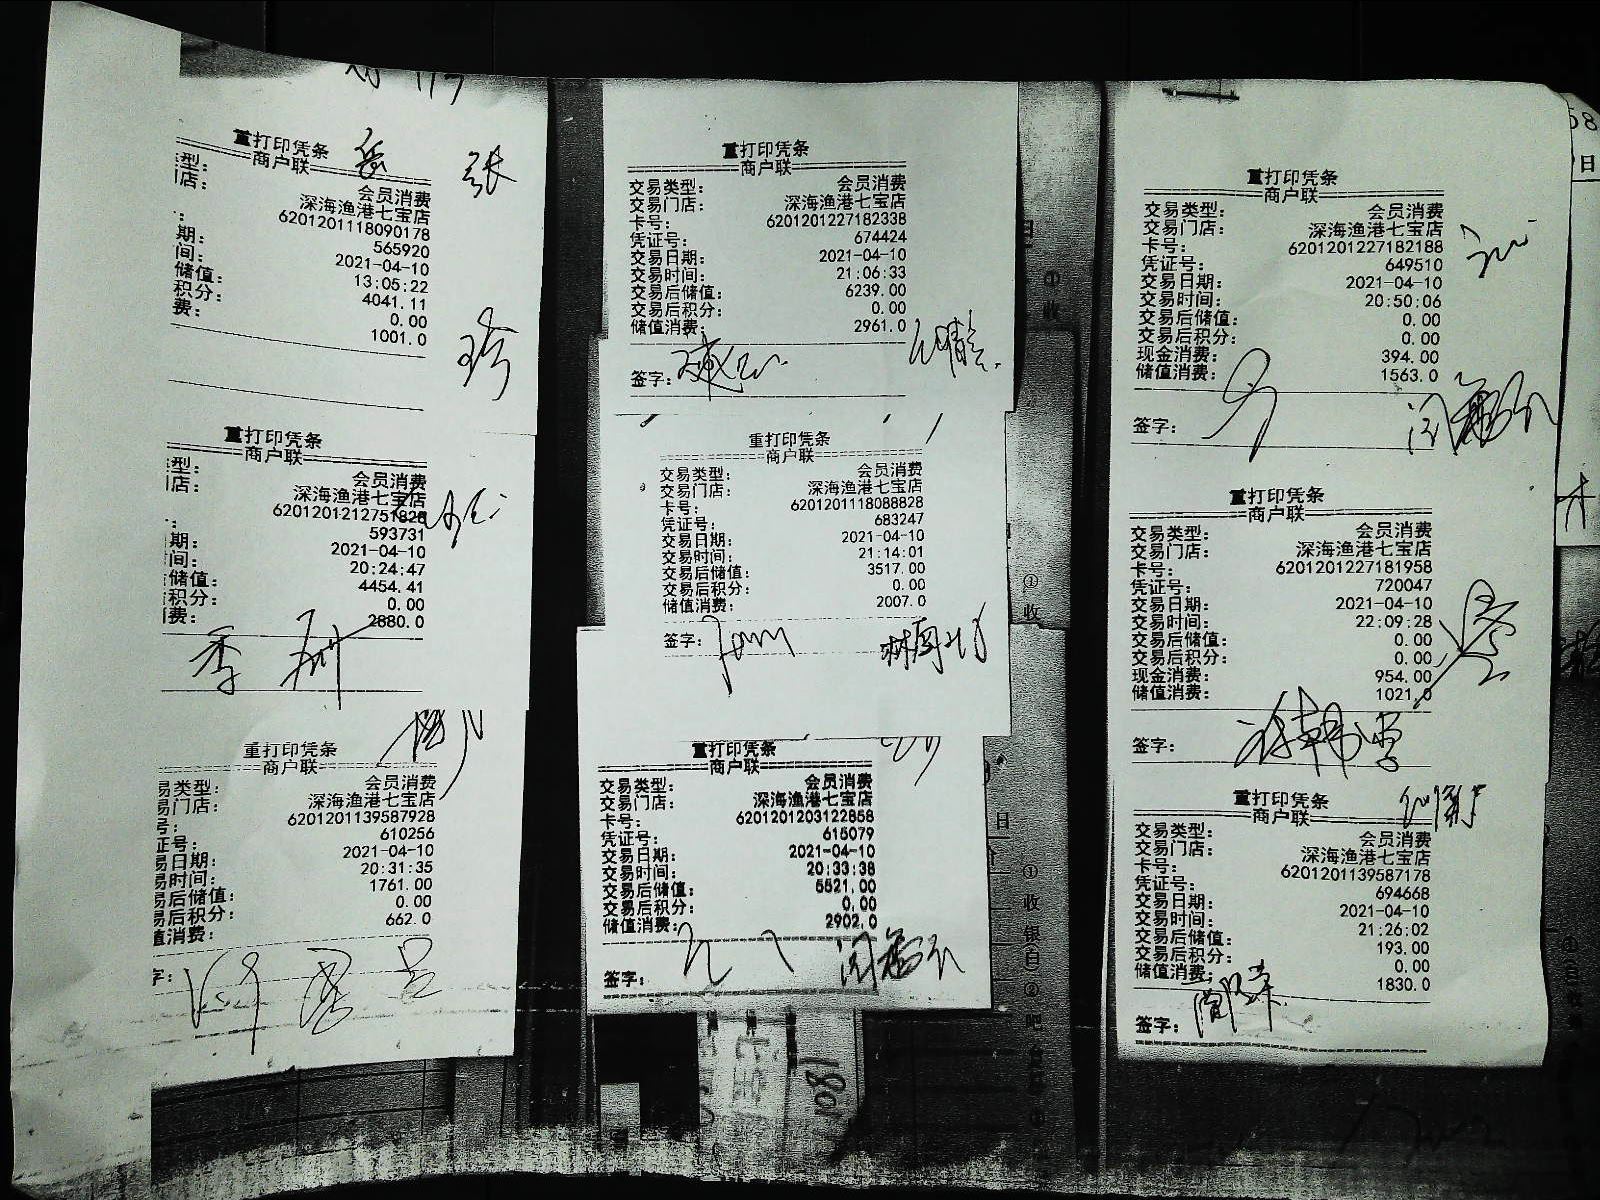 重打印凭条
商户联
型：
会员消费
店：
深海渔港七宝店
6201201118090178
：
565920
期：
2021-04-10
间：
13:05:22
储值：
4041.11
积分：
0.00
费：
1001.0
张
重打印凭条
商户联
型：
会员消费
店：
深海渔港七宝店
：
593731
期：
2021-04-10
间：
20:24:47
储值：
4454.41
积分：
0.00
费：
2880.0
季
重打印凭条
商户联
易类型：
会员消费
易门店：
深海渔港七宝店
号：
6201201139587928
证号：
610256
易日期：
2021-04-10
易时间：
20:31:35
易后储值：
1761.00
易后积分：
0.00
值消费：
662.0
字：
重打印凭条
商户联
交易类型：
会员消费
交易门店：
深海渔港七宝店
卡号：
6201201227182338
凭证号：
674424
交易日期：
2021-04-10
交易时间：
21:06:33
交易后储值：
6239.00
交易后积分：
0.00
储值消费：
2961.0
签字：
重打印凭条
商户联
交易类型：
会员消费
交易门店：
深海渔港七宝店
卡号：
6201201118088828
凭证号：
683247
交易日期：
2021-04-10
交易时间：
21:14:01
交易后储值：
3517.00
交易后积分：
0.00
储值消费：
2007.0
签字：
重打印凭条
商户联
交易类型：
会员消费
交易门店：
深海渔港七宝店
卡号：
6201201203122858
凭证号：
615079
交易日期：
2021-04-10
交易时间：
20:33:38
交易后储值：
5521.00
交易后积分：
0.00
储值消费：
2902.0
签字：
重打印凭条
商户联
交易类型：
会员消费
交易门店：
深海渔港七宝店
卡号：
6201201227182188
凭证号：
649510
交易日期：
2021-04-10
交易时间：
20:50:06
交易后储值：
0.00
交易后积分：
0.00
现金消费：
394.00
储值消费：
1563.0
签字：
重打印凭条
商户联
交易类型：
会员消费
交易门店：
深海渔港七宝店
卡号：
6201201227181958
凭证号：
720047
交易日期：
2021-04-10
交易时间：
22:09:28
交易后储值：
0.00
交易后积分：
0.00
现金消费：
954.00
储值消费：
1021.0
签字：
重打印凭条
商户联
交易类型：
会员消费
交易门店：
深海渔港七宝店
卡号：
6201201139587178
凭证号：
694668
交易日期：
2021-04-10
交易时间：
21:26:02
交易后储值：
193.00
交易后积分：
0.00
储值消费：
1830.0
签字：